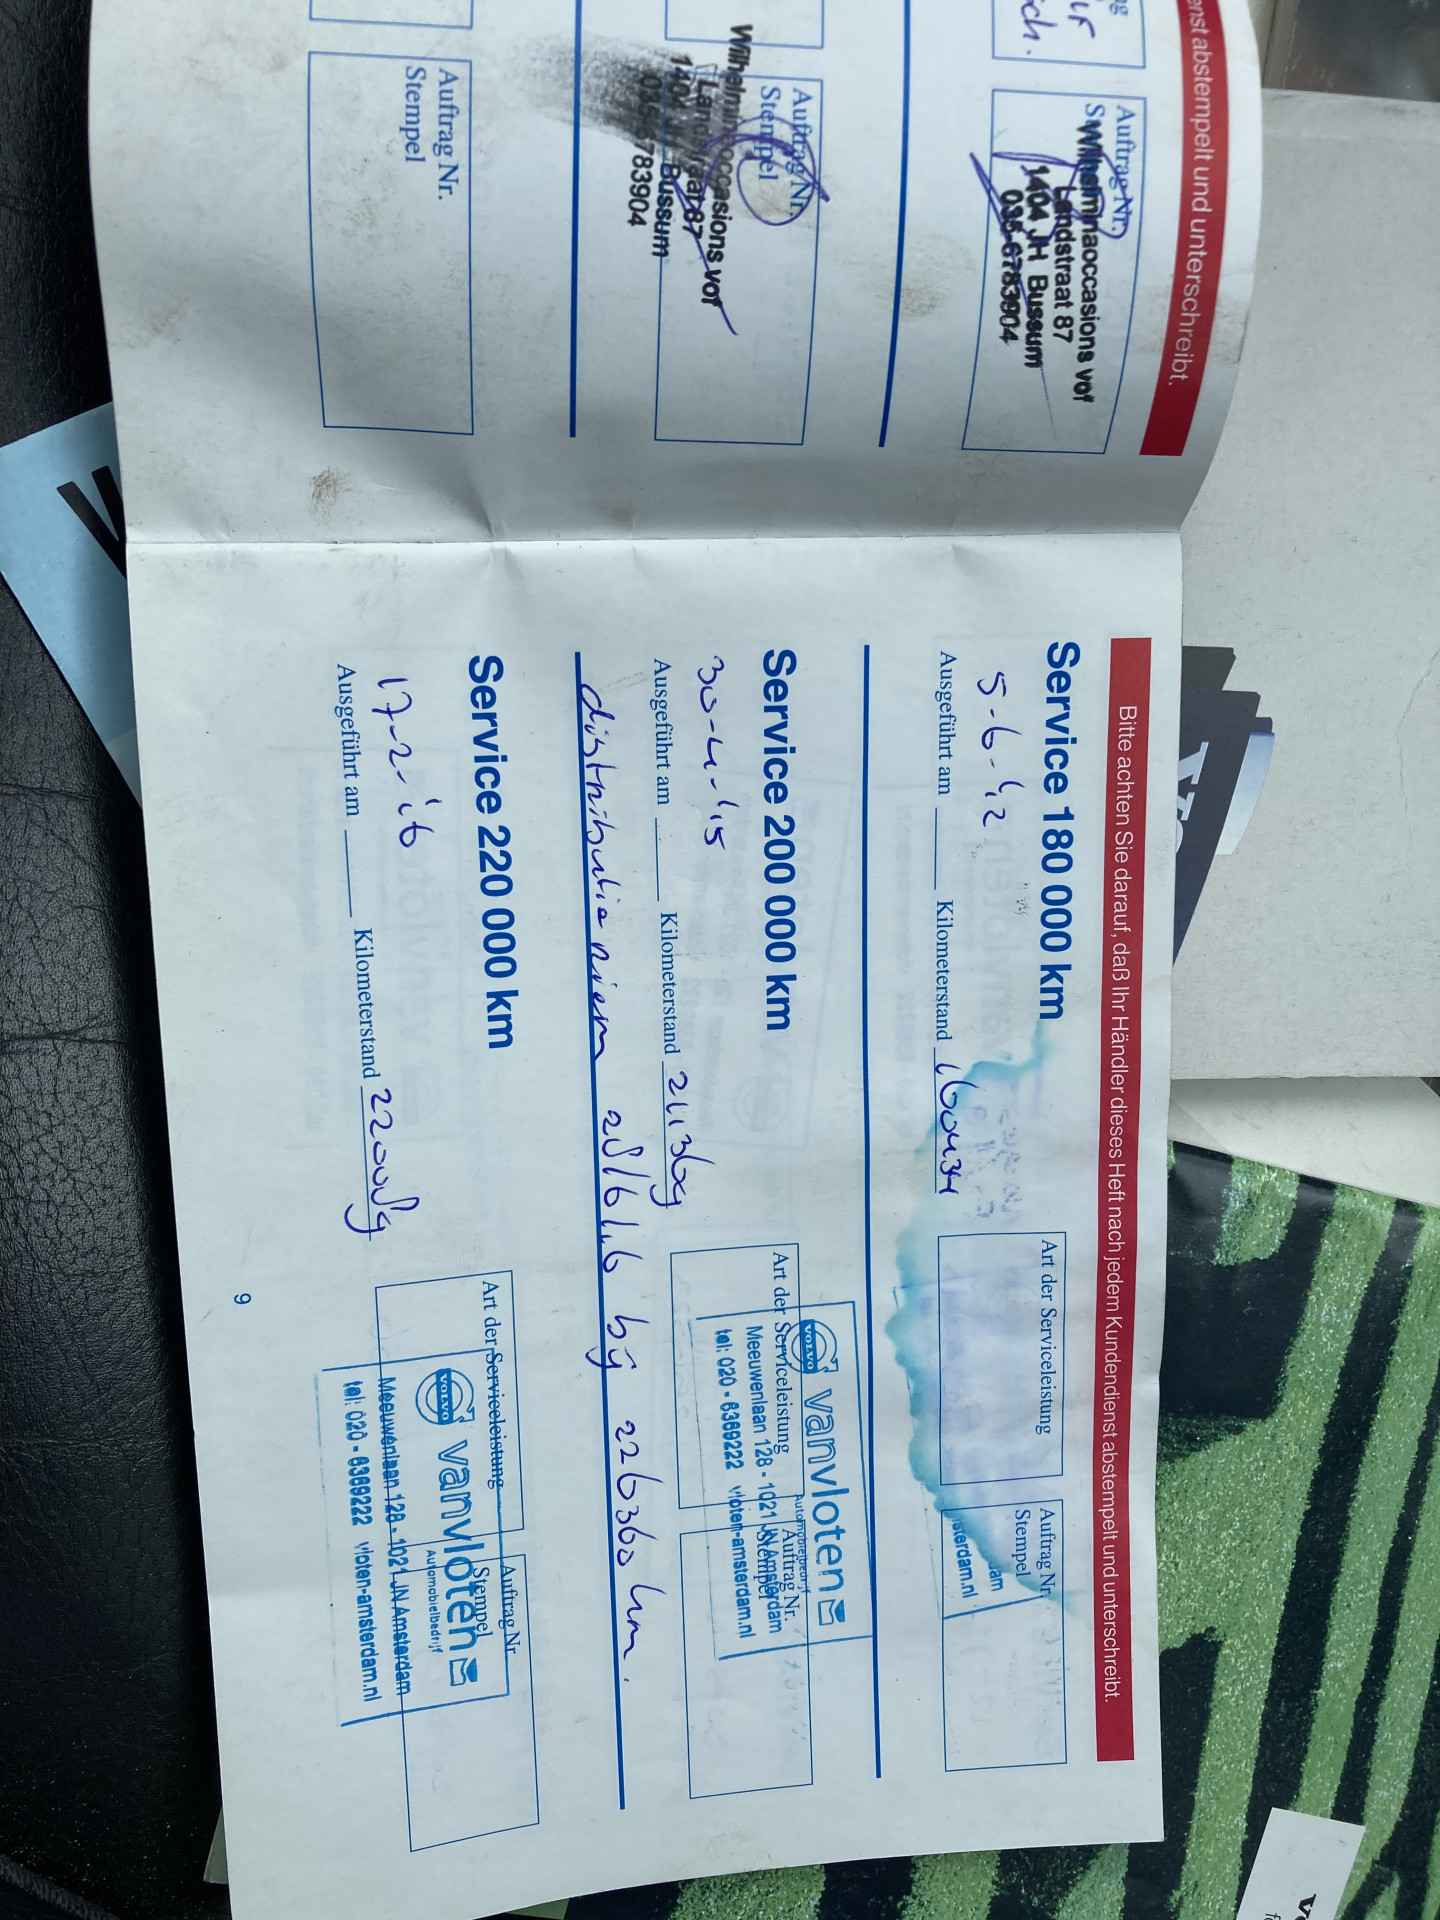 enst abstempelt und unterschreibt.
ch.
Auftrag Nr.
Wilhelminaoccasions vof
Landstraat 87
1404 JH Bussum
035-6783904
Auftrag Nr.
Stempel
Wilhelminaoccasions vof
Landstraat 87
1404 JH Bussum
Auftrag Nr.
Stempel
Bitte achten Sie darauf, daß Ihr Händler dieses Heft nach jedem Kundendienst abstempelt und unterschreibt.
Service 180 000 km
5-6-'12
Ausgeführt am
Kilometerstand 160434
Art der Serviceleistung
Auftrag Nr.
Stempel
dam
sterdam.nl
Service 200 000 km
30-4-'15
Ausgeführt am
Kilometerstand 211369
Art der Serviceleistung
Auftrag Nr.
Stempel
VOLVO
vanvloten
Automobielbedrijf
Meeuwenlaan 128 - 1021 JN Amsterdam
tel: 020 - 6369222 vloten-amsterdam.nl
distributieriem 28/6/16 bij 226360 km.
Service 220 000 km
17-2-'16
Ausgeführt am
Kilometerstand 220089
Art der Serviceleistung
Auftrag Nr.
Stempel
VOLVO
vanvloten
Automobielbedrijf
Meeuwenlaan 128 - 1021 JN Amsterdam
tel: 020 - 6369222 vloten-amsterdam.nl
9